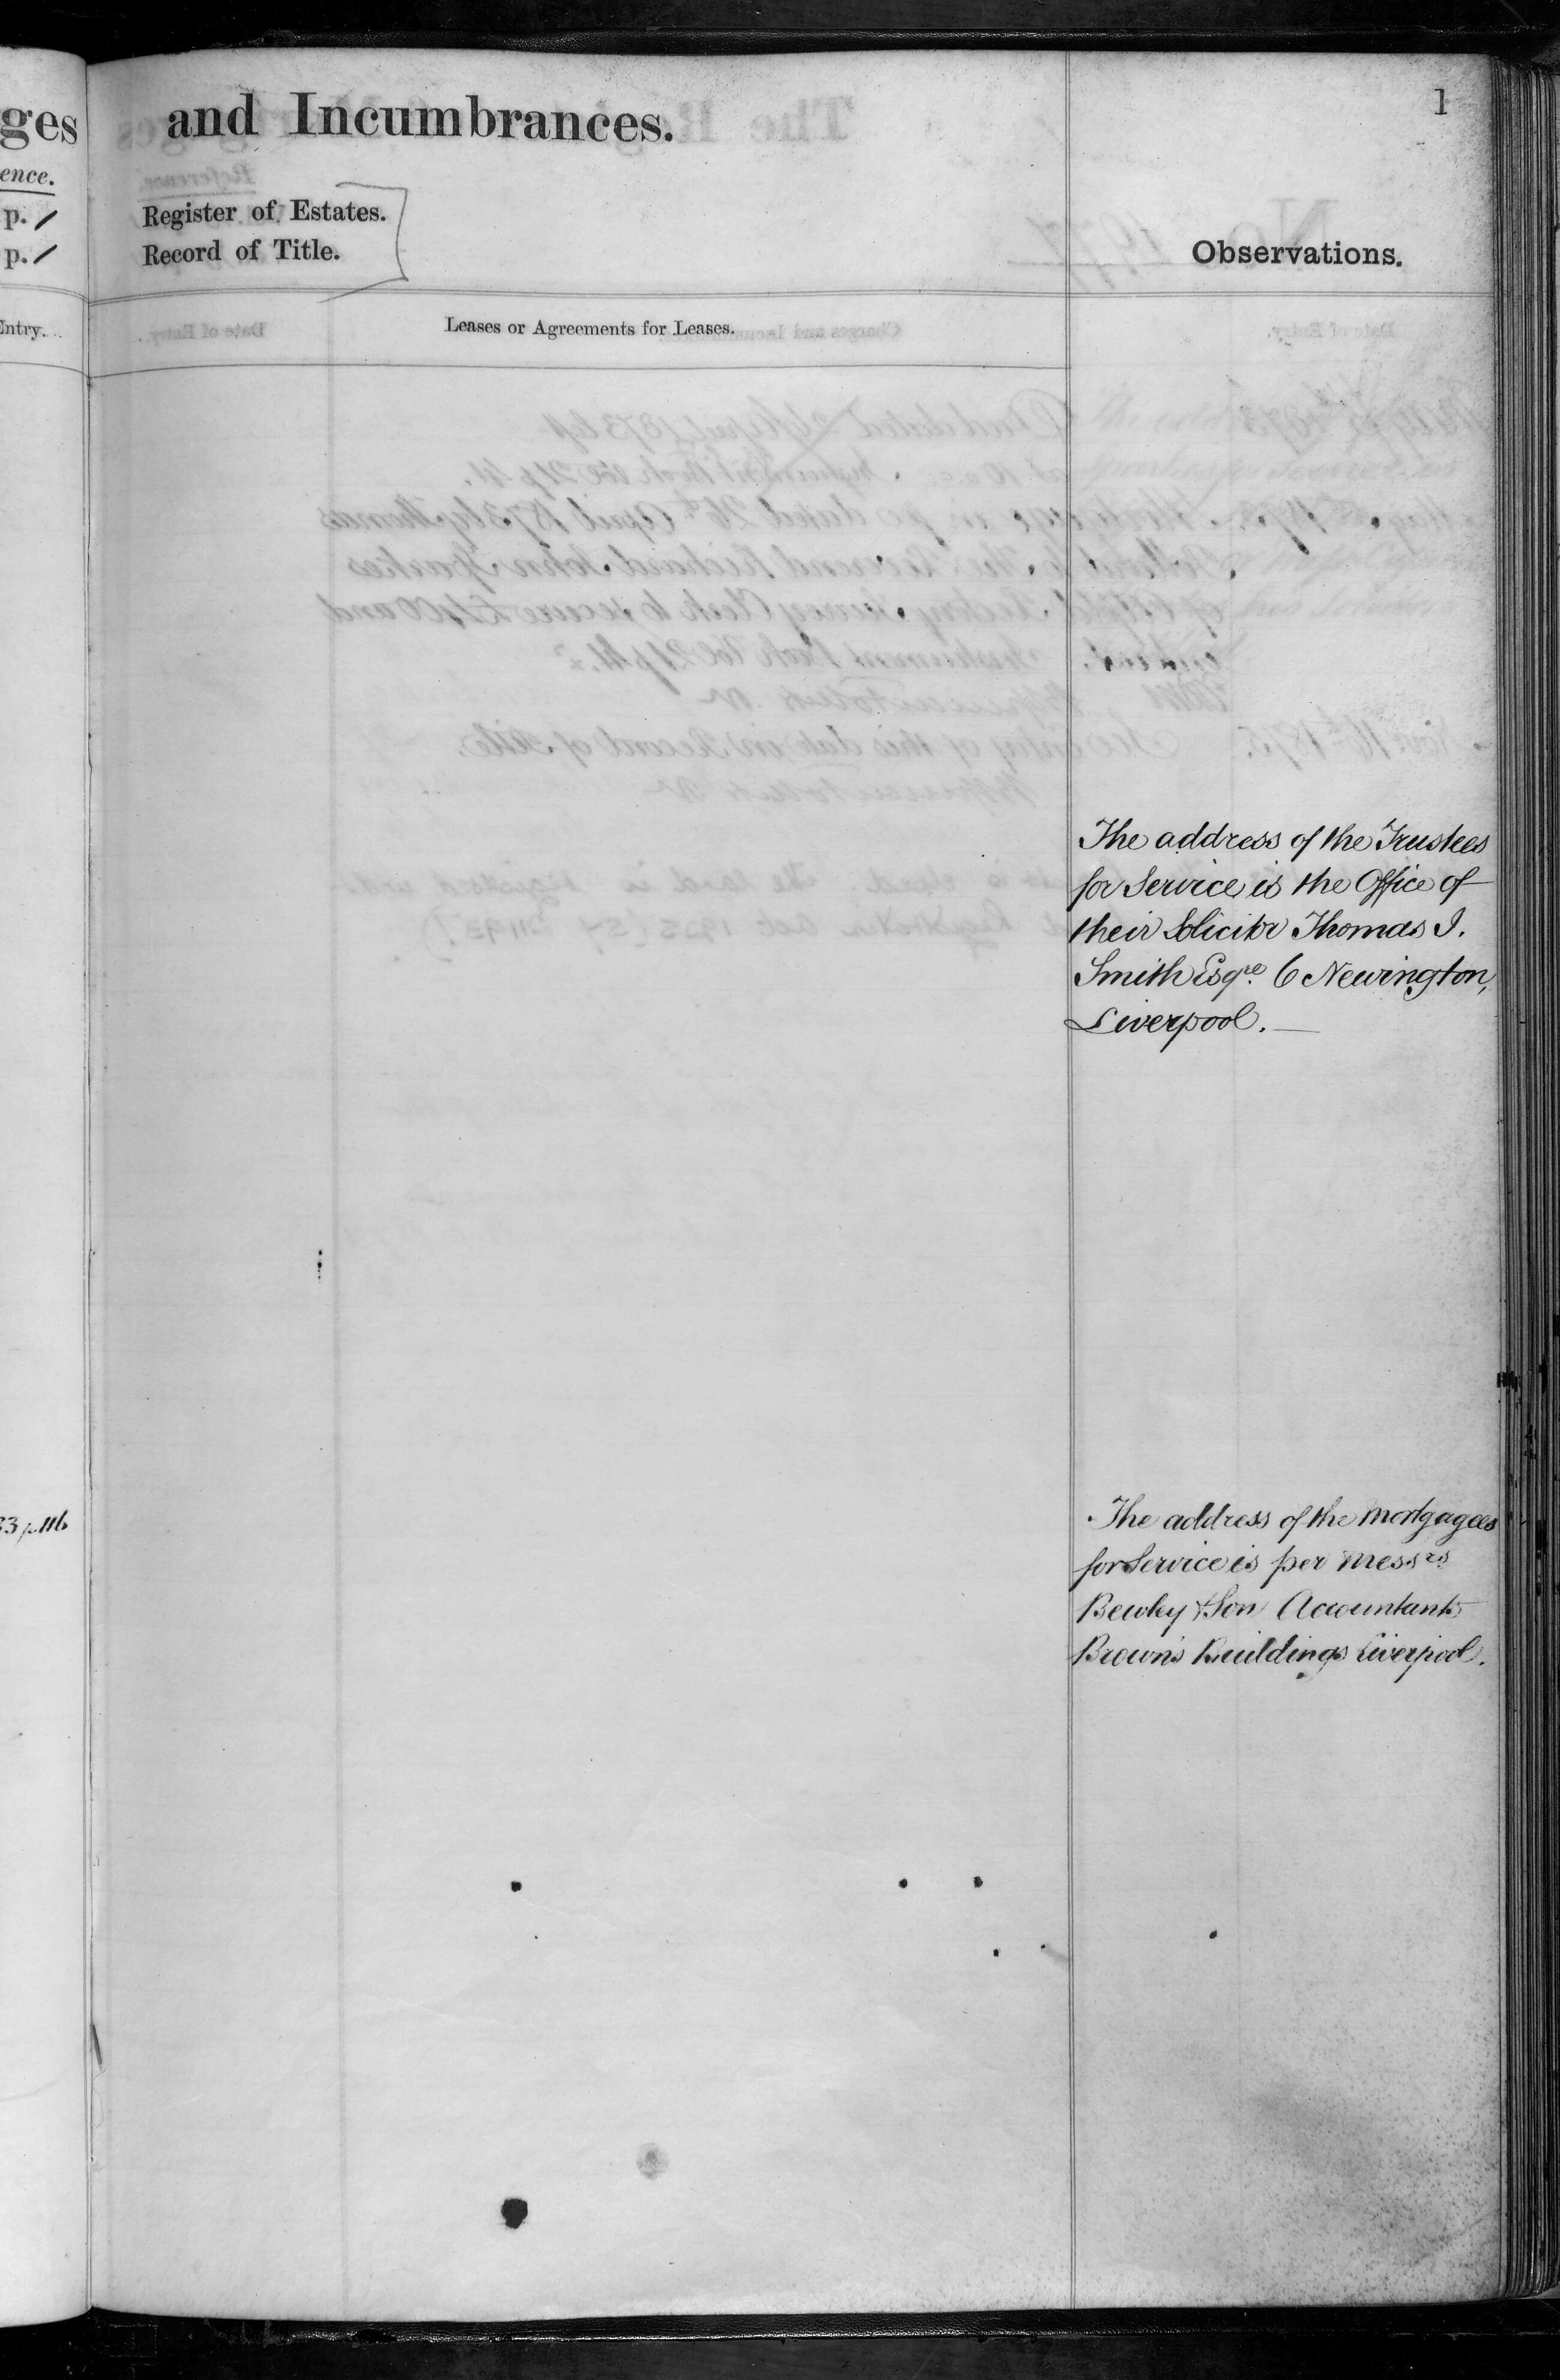 ges
ence.
p. 1
p. 1
Entry.
33 p. 116
and Incumbrances.
1
Register of Estates.
Record of Title.
Observations.
Leases or Agreements for Leases.
The address of the Trustees
for Service is the Office of
their Solicitor Thomas J.
Smith Esqre 6 Newington,
Liverpool.
The address of the mortgagees
for Service is per Messrs
Bewley & Son Accountants
Brown's Buildings Liverpool.